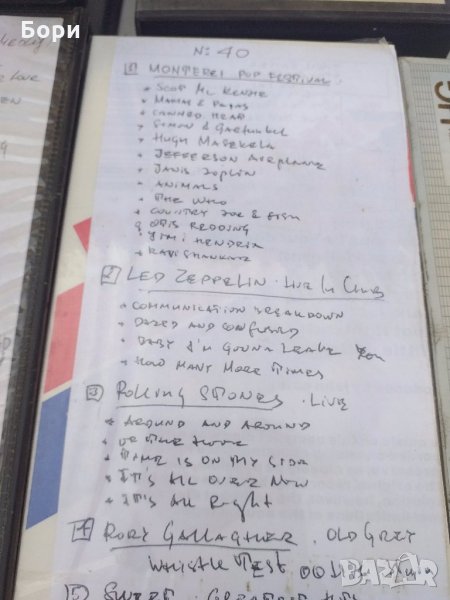 Бори
№ 40
1 MONTEREI POP FESTIVAL
* SCOT Mc KENZIE
* MAMAS & PAPAS
* CANNED HEAD
* SIMON & GARFUNKEL
* HUGH MASEKELA
* JEFFERSON AIRPLANE
* JANIS JOPLIN
* ANIMALS
* THE WHO
* COUNTRY JOE & FISH
* OTIS REDDING
* JIMI HENDRIX
* RAVI SHANKAR
2 LED ZEPPELIN - LIVE IN
* COMMUNICATION BREAKDOWN
* DAZED AND CONFUSED
* BABY I'M GONNA LEAVE YOU
* HOW MANY MORE TIMES
3 ROLLING STONES . LIVE
* AROUND AND AROUND
* OF THE
* TIME IS ON MY SIDE
* IT'S ALL OVER NOW
* IT'S ALL RIGHT
4 RORY GALLAGHER . OLD GREY
WHISTLE TEST
5 SWEET - GREATEST HITS
BAZAR